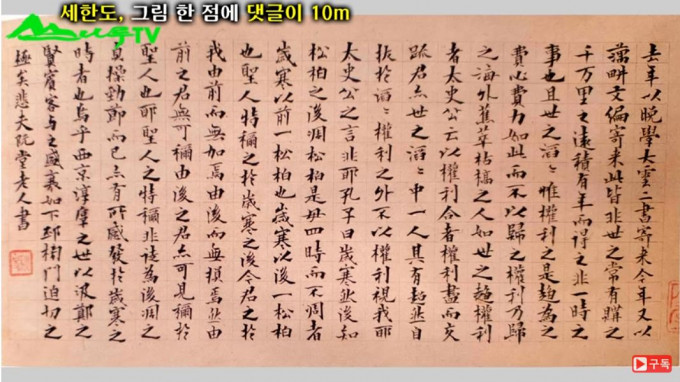 세한도, 그림 한 점에 댓글이 10m
TV
去年以晩學大雲二書寄來今年又以
藕畊文編寄來此皆非世之常有購之
千万里之遠積有年而得之非一時之
事也且世之滔滔惟權利之是趨爲之
費心費力如此而不以歸之權利乃歸
之海外蕉萃枯槁之人如世之趨權利
者太史公云以權利合者權利盡而交
踈君亦世之滔滔中一人其有超然自
拔於滔滔權利之外不以權利視我耶
太史公之言非耶孔子曰歲寒然後知
松栢之後凋松栢是毋四時而不凋者
歲寒以前一松栢也歲寒以後一松栢
也聖人特稱之於歲寒之後今君之於
我由前而無加焉由後而無損焉然由
前之君無可稱由後之君亦可見稱於
聖人也耶聖人之特稱非徒爲後凋之
貞操勁節而已亦有所感發於歲寒之
時者也烏乎西京淳厚之世以汲鄭之
賢賓客與之盛衰如下邳榜門迫切之
極矣悲夫阮堂老人書
구독